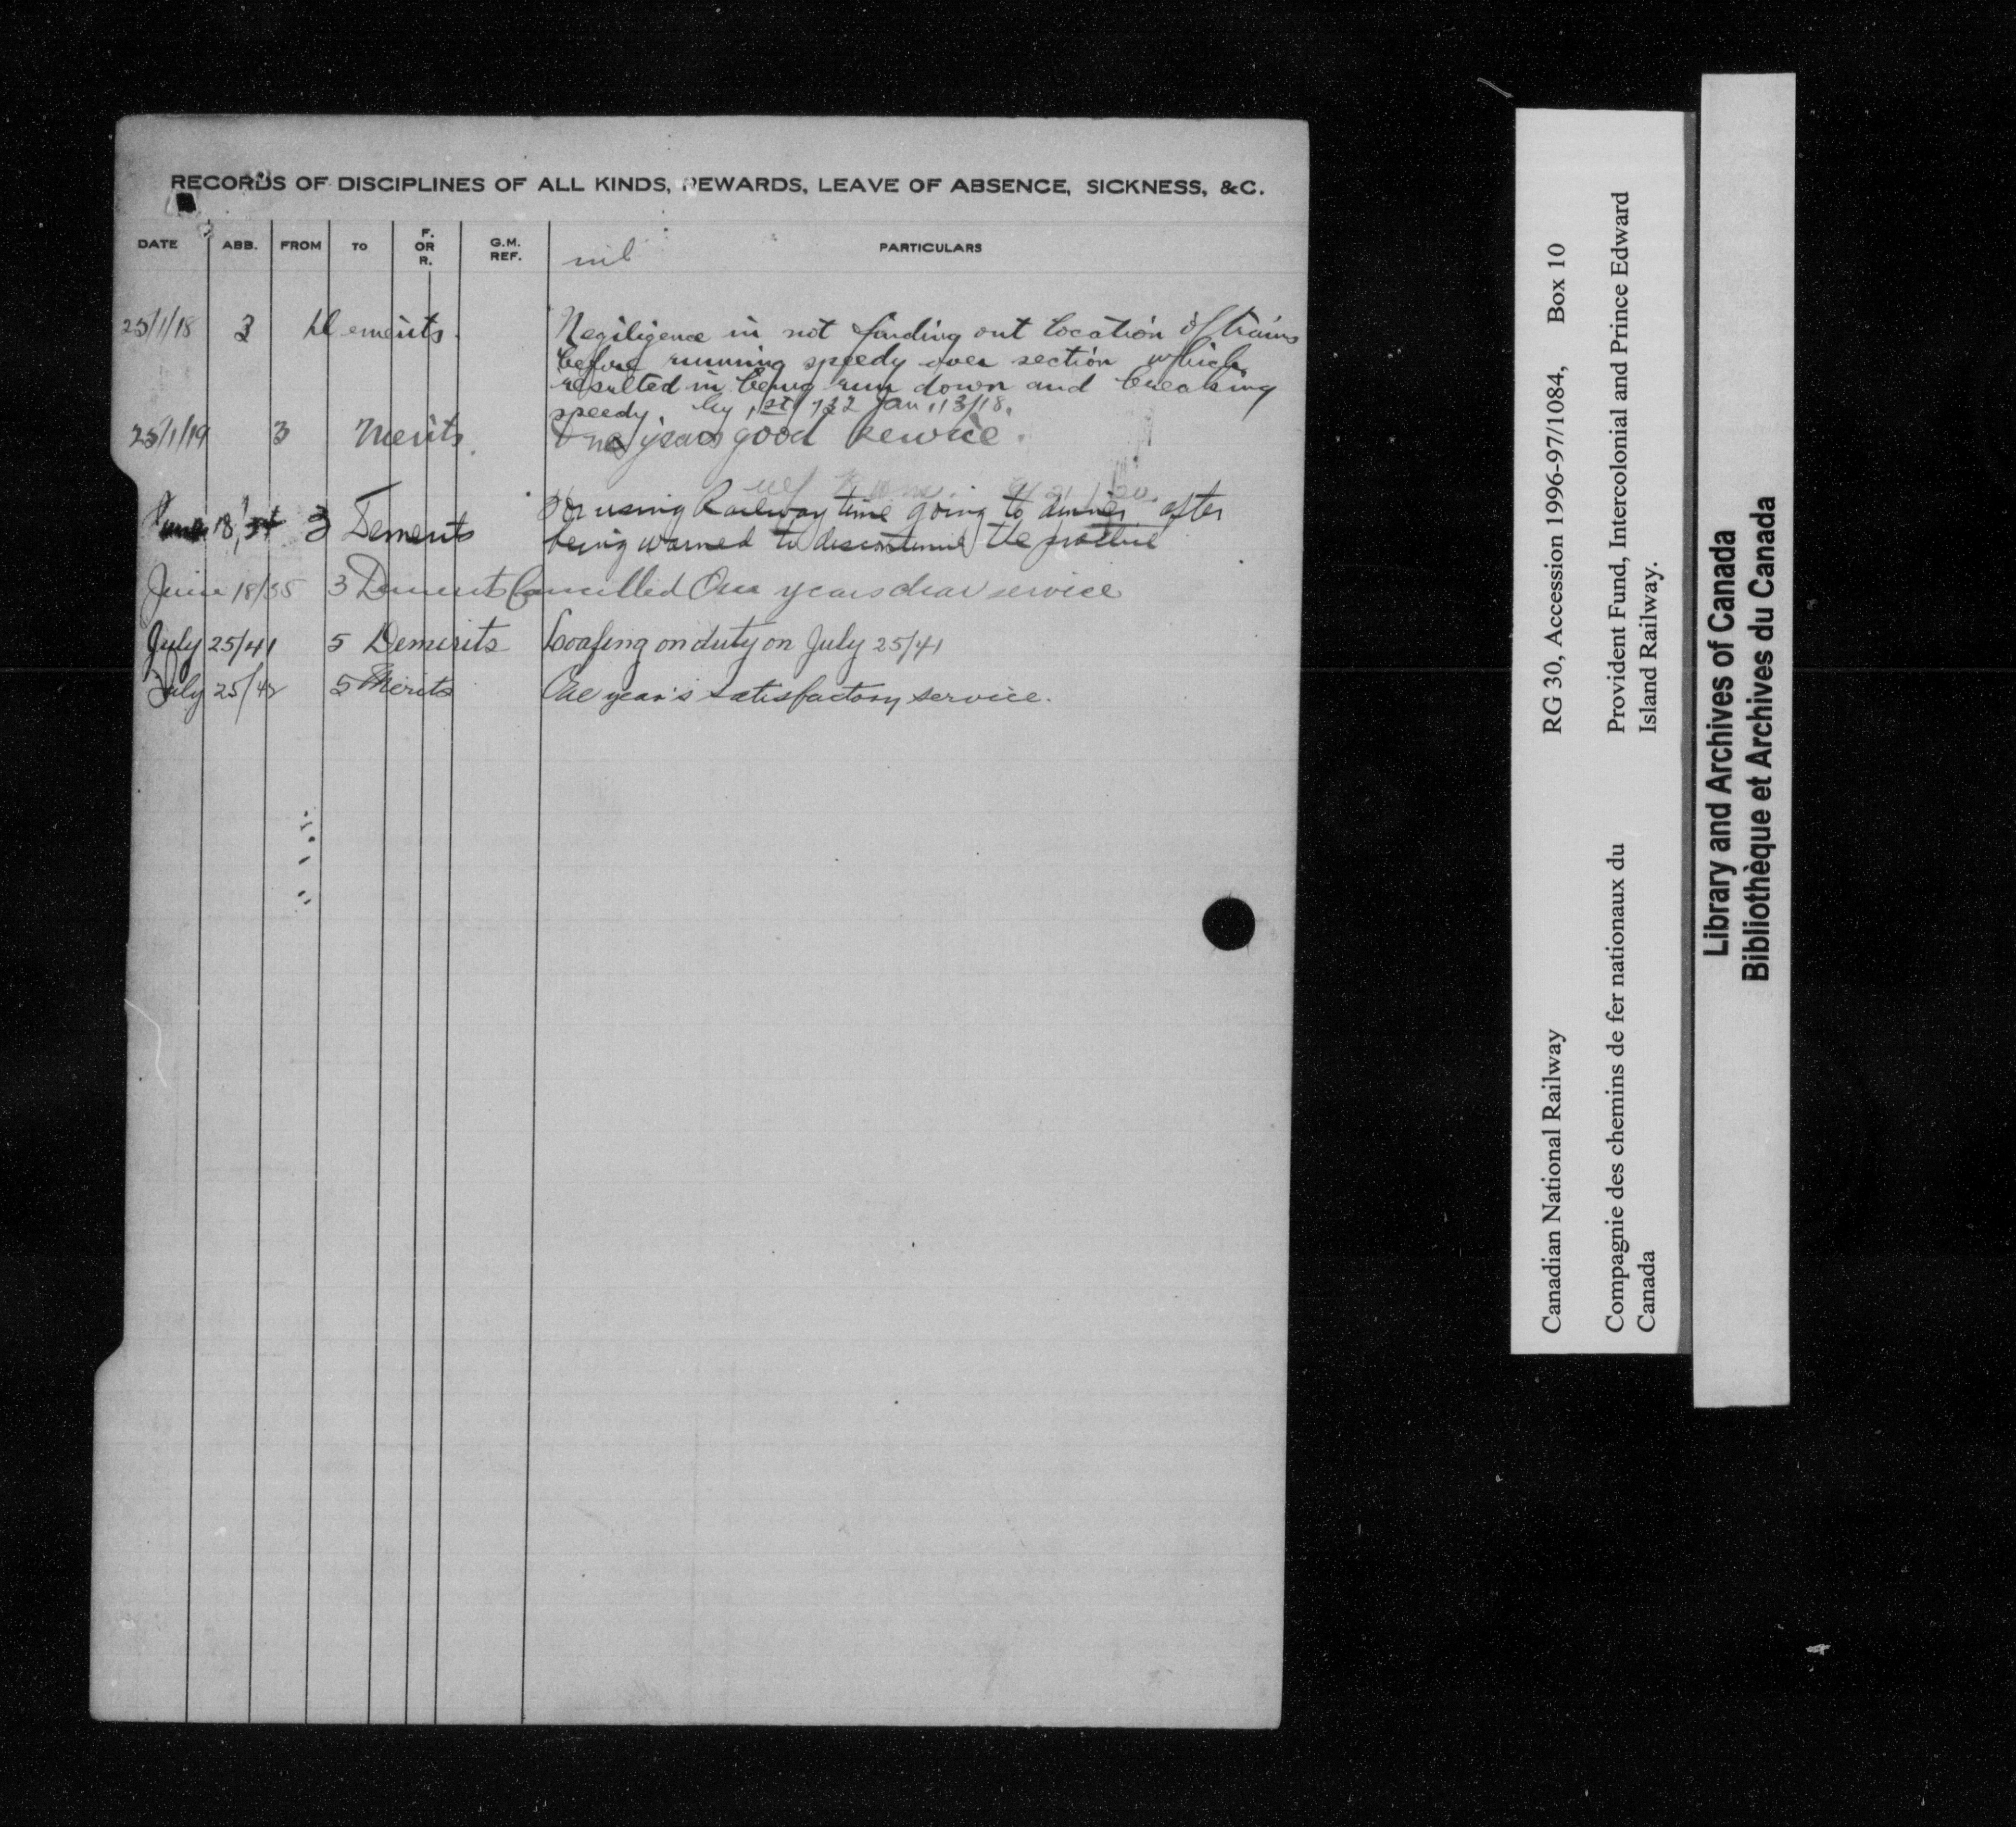 RECORDS OF DISCIPLINES OF ALL KINDS, REWARDS, LEAVE OF ABSENCE, SICKNESS, &C.
DATE ABB. FROM TO F. OR R. G.M. REF. PARTICULARS
nil
25/1/18 3 Demerits. Negiligence in not finding out location of trains
before running speedy over section which
resulted in being run down and breaking
speedy. by 732 Jan. 13/18.
25/1/19 3 Merits. One years good service.
June 18, 34 3 Demerits For using Railway time going to dinner after
being warned to discontinue the practice
June 18/35 3 Demerits Cancelled One years clear service
July 25/41 5 Demerits Loafing on duty on July 25/41
July 25/42 5 Merits One year's satisfactory service.
Canadian National Railway RG 30, Accession 1996-97/1084, Box 10
Compagnie des chemins de fer nationaux du Provident Fund, Intercolonial and Prince Edward
Canada Island Railway.
Library and Archives of Canada
Bibliothèque et Archives du Canada